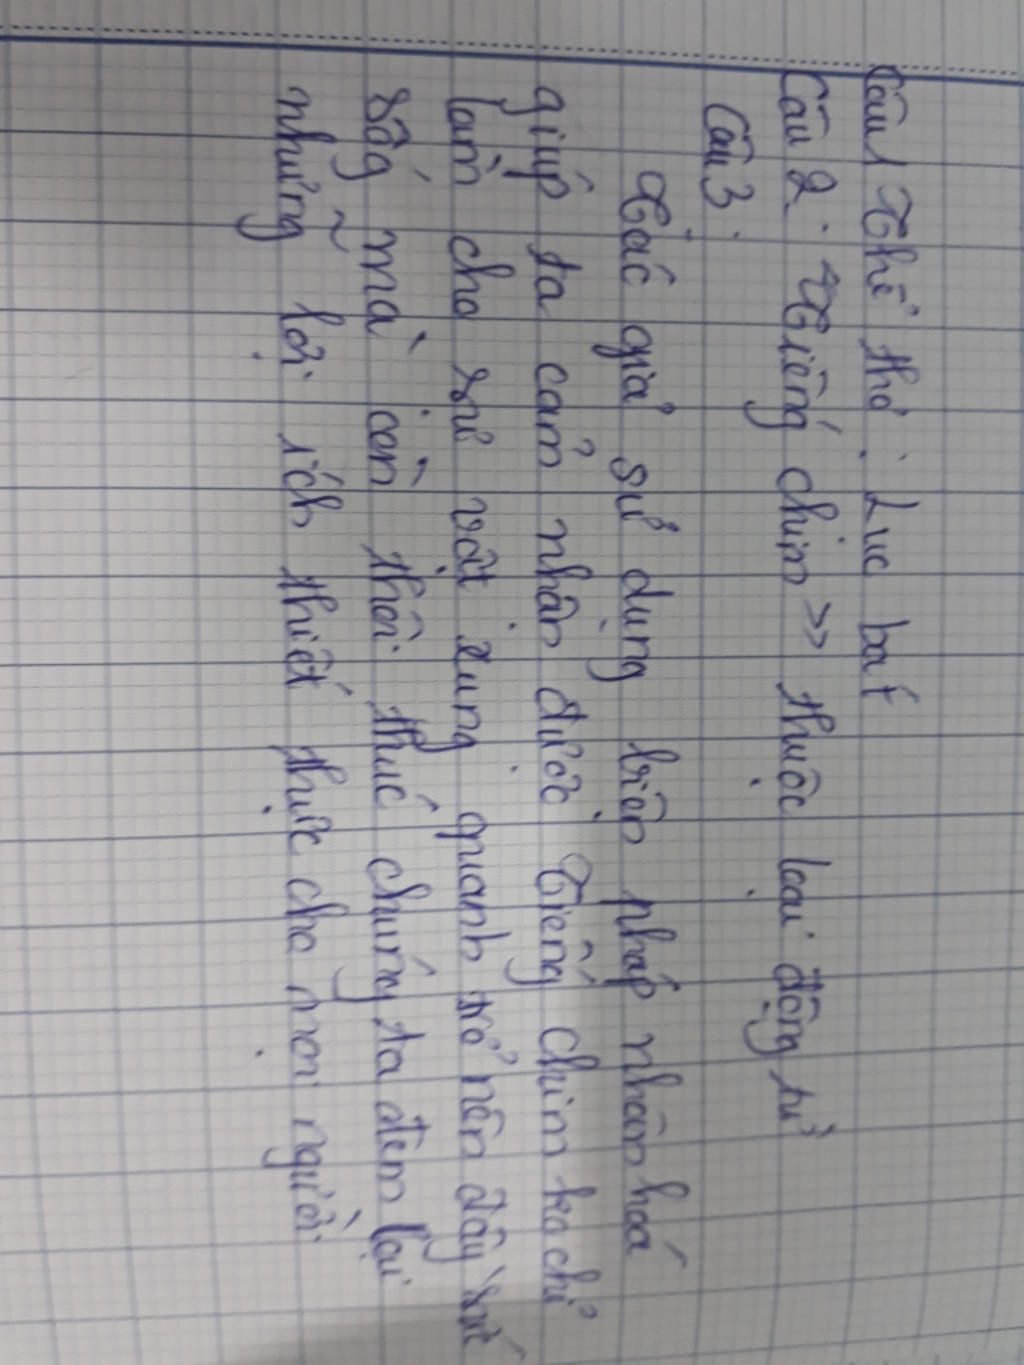 Câu 1 Thể thơ : Lục bát
Câu 2 : Tiếng chim >> thuộc loại động từ
Câu 3 :
Tác giả sử dụng biện pháp nhân hoá
giúp ta cảm nhận được Tiếng chim ko chỉ
làm cho sự vật xung quanh trở nên đầy sức
sống mà còn thôi thúc chúng ta đem lại
những lợi ích thiết thực cho mọi người